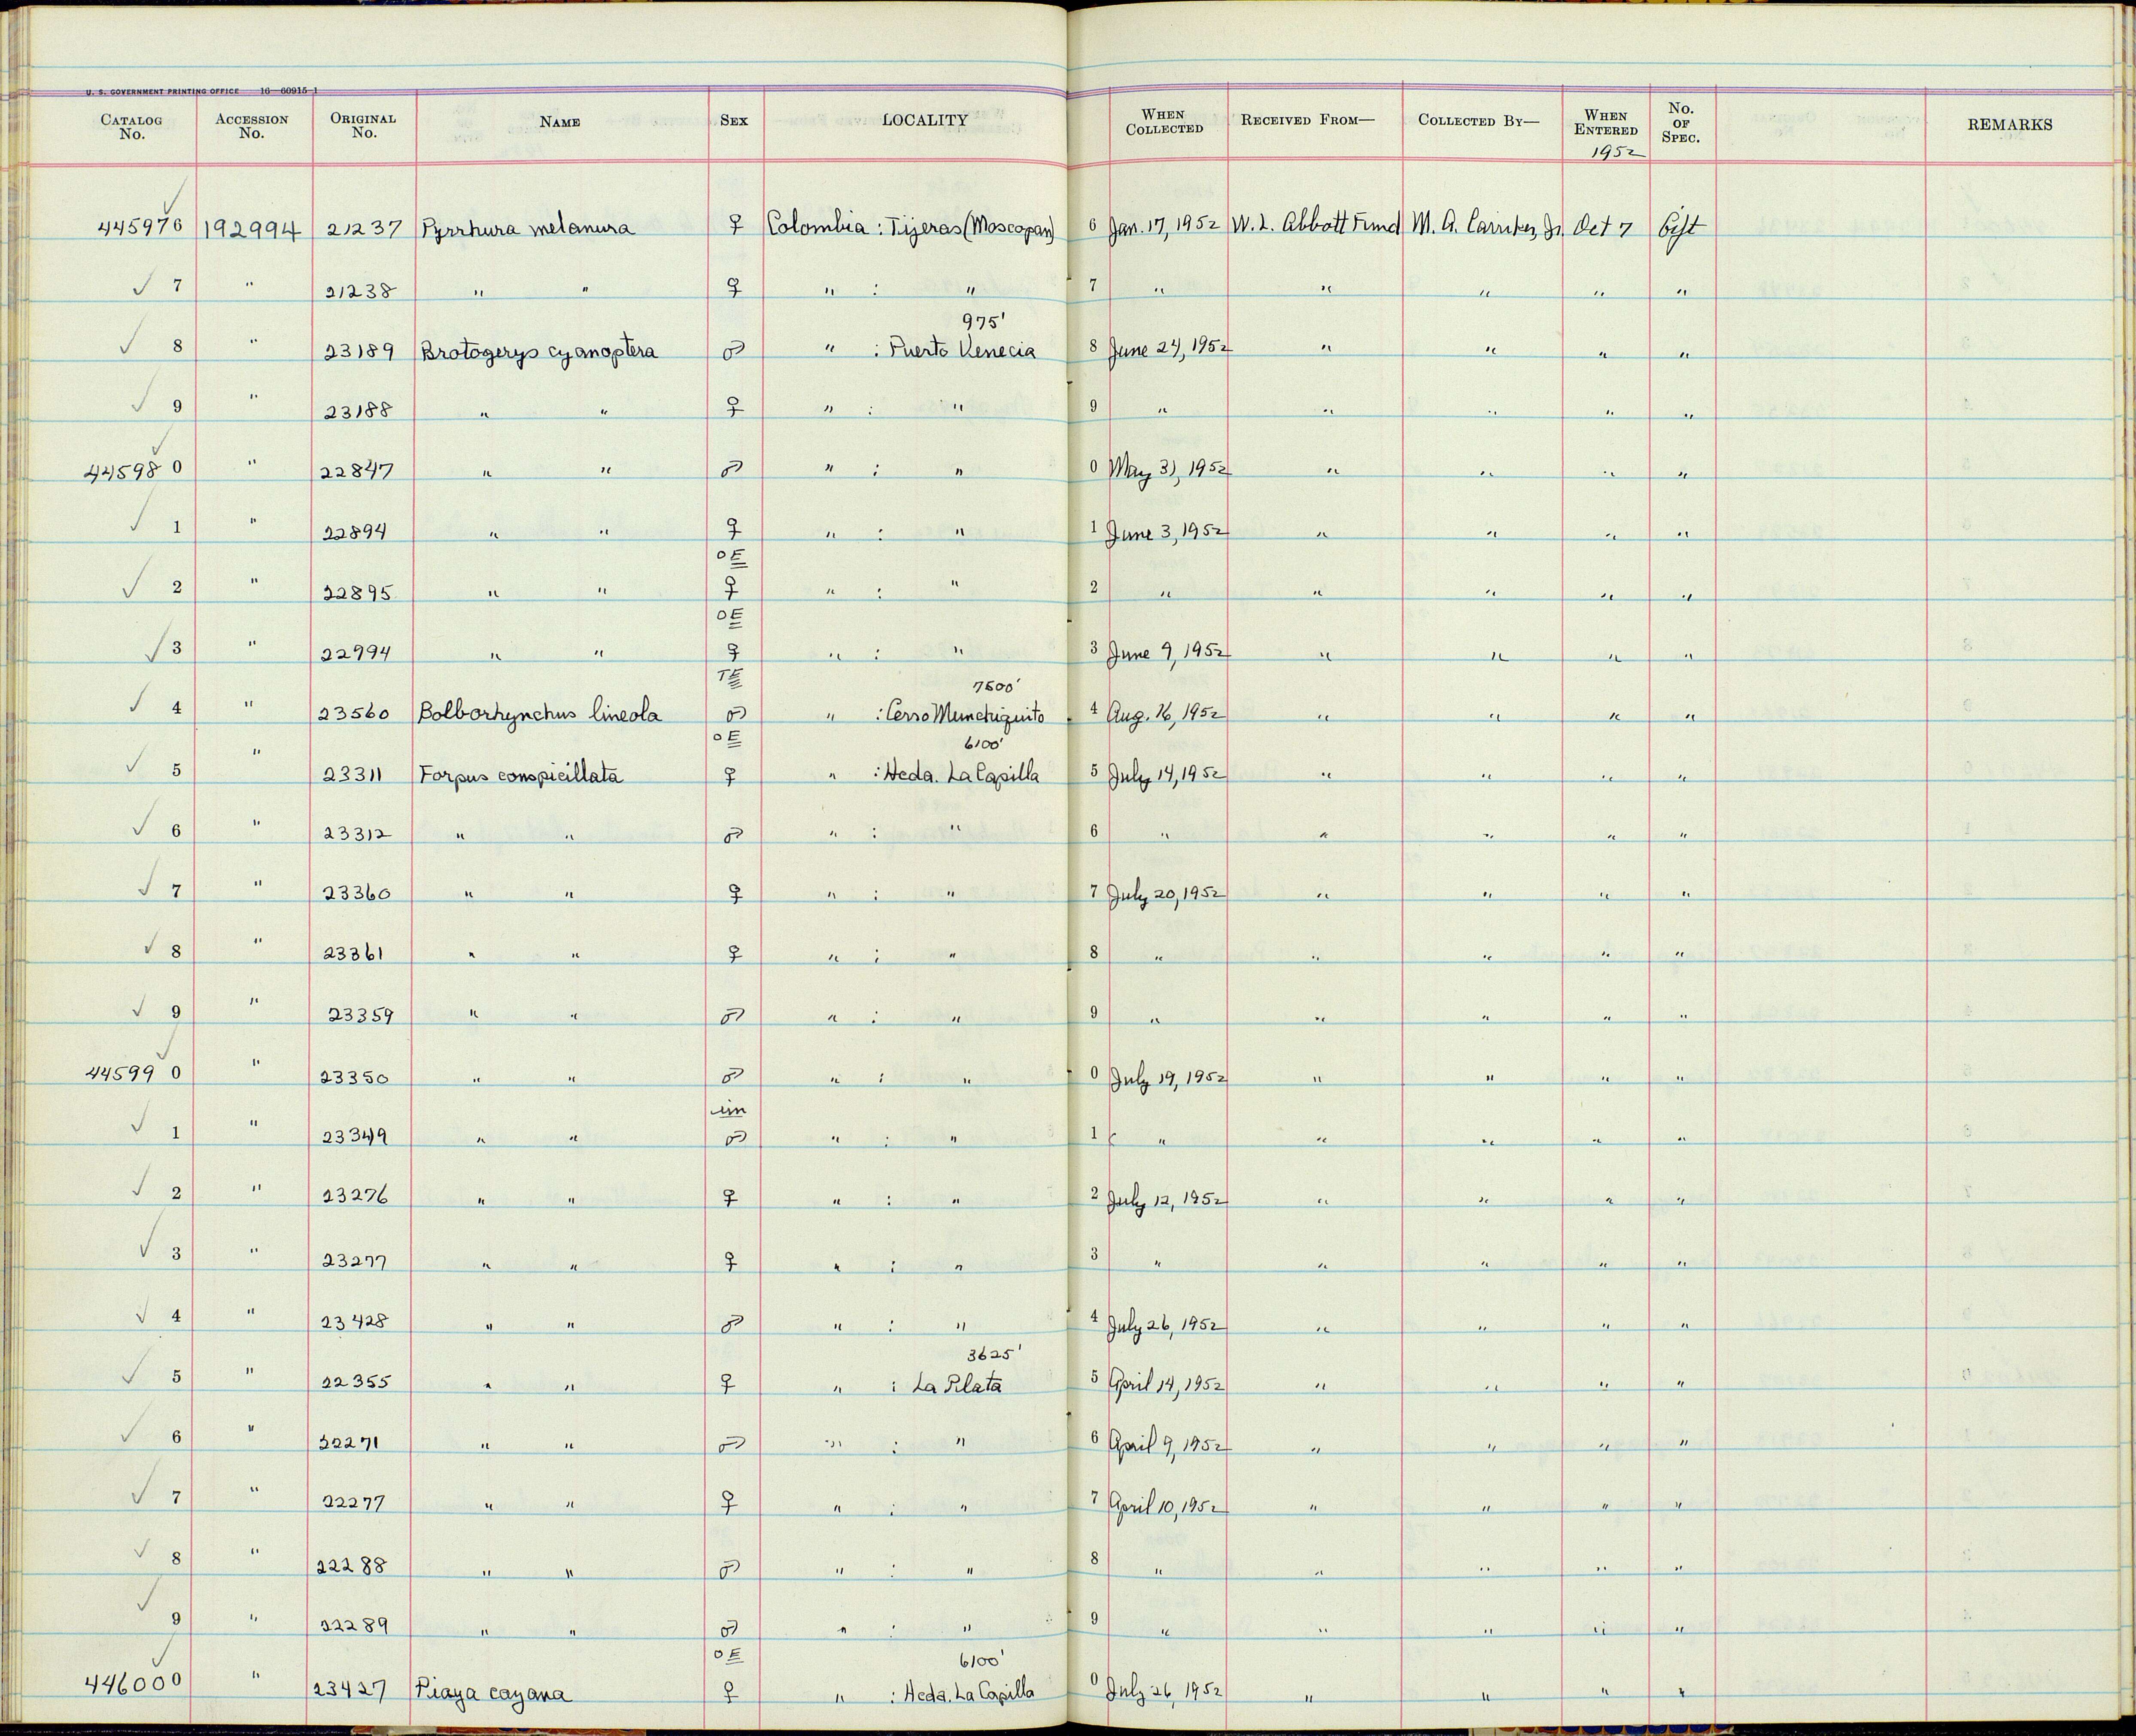 U. S. GOVERNMENT PRINTING OFFICE 16—60915-1
CATALOG No. ACCESSION No. ORIGINAL No. NAME SEX LOCALITY WHEN COLLECTED RECEIVED FROM— COLLECTED BY— WHEN ENTERED 1952 No. OF SPEC. REMARKS
445976 192994 21237 Pyrrhura melanura ♀ Colombia : Tijeras (Moscopan) 6 Jan. 17, 1952 W. L. Abbott Fund M. A. Carriker, Jr. Oct 7 Gift
7 " 21238 " " ♀ " : " 7 " " " " "
975'
8 " 23189 Brotogerys cyanoptera ♂ " : Puerto Venecia 8 June 24, 1952 " " " "
9 " 23188 " " ♀ " : " 9 " " " " "
445980 " 22847 " " ♂ " : " 0 May 31, 1952 " " " "
1 " 22894 " " ♀ " : " 1 June 3, 1952 " " " "
OE
2 " 22895 " " ♀ " : " 2 " " " " "
OE
3 " 22994 " " ♀ " : " 3 June 9, 1952 " " " "
TE 7500'
4 " 23560 Bolborhynchus lineola ♂ " : Cerro Munchiquito 4 Aug. 16, 1952 " " " "
OE 6100'
5 " 23311 Forpus conspicillata ♀ " : Hcda. La Capilla 5 July 14, 1952 " " " "
6 " 23312 " " ♂ " : " 6 " " " " "
7 " 23360 " " ♀ " : " 7 July 20, 1952 " " " "
8 " 23361 " " ♀ " : " 8 " " " " "
9 " 23359 " " ♂ " : " 9 " " " " "
445990 " 23350 " " ♂ " : " 0 July 19, 1952 " " " "
im
1 " 23349 " " ♂ " : " 1 " " " " "
2 " 23276 " " ♀ " : " 2 July 12, 1952 " " " "
3 " 23277 " " ♀ " : " 3 " " " " "
4 " 23428 " " ♂ " : " 4 July 26, 1952 " " " "
3625'
5 " 22355 " " ♀ " : La Plata 5 April 14, 1952 " " " "
6 " 22271 " " ♂ " : " 6 April 9, 1952 " " " "
7 " 22277 " " ♀ " : " 7 April 10, 1952 " " " "
8 " 22288 " " ♂ " : " 8 " " " " "
9 " 22289 " " ♂ " : " 9 " " " " "
OE 6100'
446000 " 23427 Piaya cayana ♀ " : Hcda. La Capilla 0 July 26, 1952 " " " "